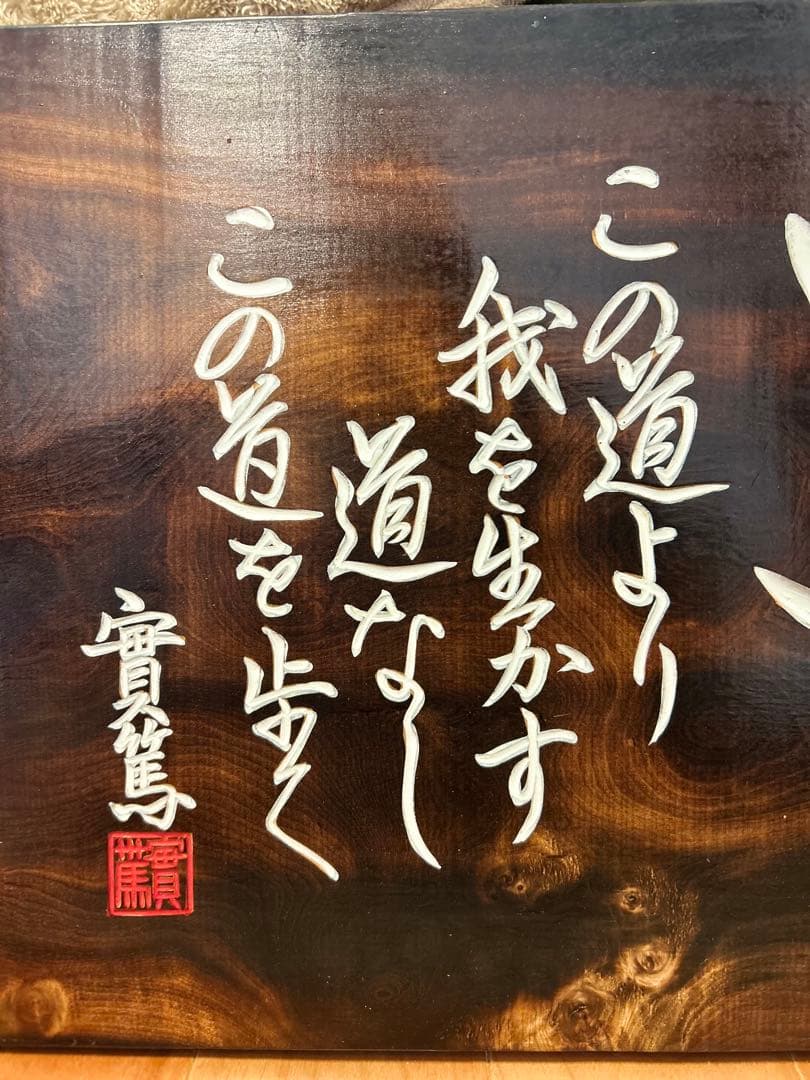 この道より
我を生かす
道なし
この道を歩く
實篤
實篤